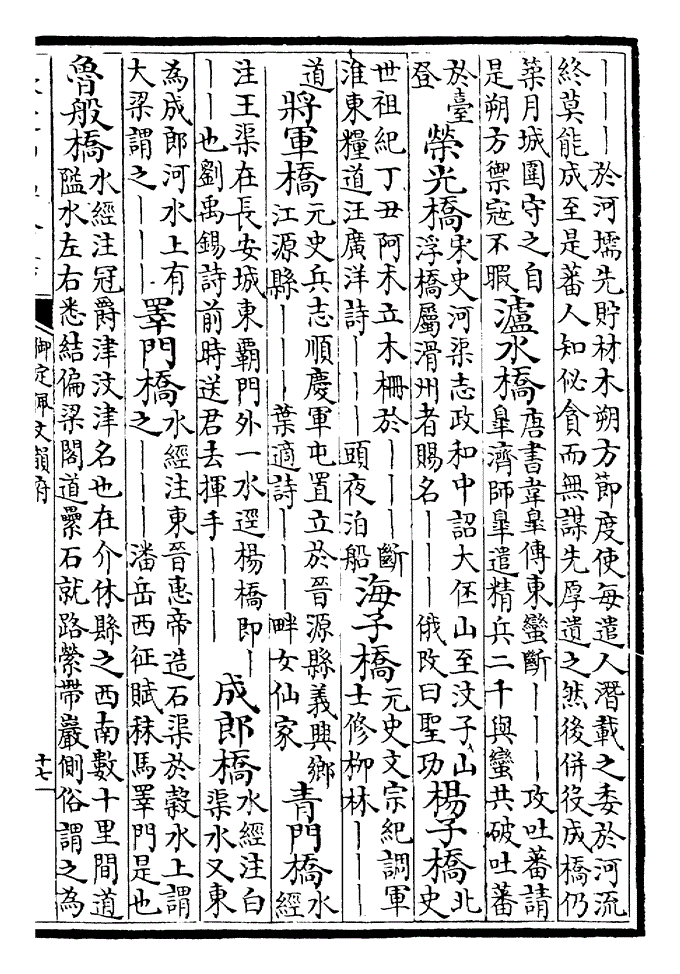 ｜｜｜於河壖先貯材木朔方節度使每遣人潛載之委於河流
終莫能成至是蕃人知佖貪而無謀先厚遺之然後併役成橋仍
築月城圍守之自
是朔方禦寇不暇
瀘水橋
唐書韋皐傳東蠻斷｜｜｜攻吐蕃請
皐濟師皐遣精兵二千與蠻共破吐蕃
於臺
登
榮光橋
宋史河渠志政和中詔大伾山至汶子山
浮橋屬滑州者賜名｜｜｜俄改曰聖功
楊子橋
北
史
世祖紀丁丑阿木立木柵於｜｜｜斷
淮東糧道汪廣洋詩｜｜｜頭夜泊船
海子橋
元史文宗紀調軍
士修柳林｜｜｜
道
將軍橋
元史兵志順慶軍屯置立於晉源縣義興鄉
江源縣｜｜｜葉適詩｜｜｜畔女仙家
青門橋
水
經
注王渠在長安城東霸門外一水逕楊橋即｜
｜｜也劉禹錫詩前時送君去揮手｜｜｜
成郎橋
水經注白
渠水又東
為成郎河水上有
大梁謂之｜｜｜
睪門橋
水經注東晉惠帝造石渠於榖水上謂
之｜｜｜潘岳西征賦秣馬睪門是也
魯般橋
水經注冠爵津汶津名也在介休縣之西南數十里間道
隘水左右悉結偏梁閣道壘石就路縈帶巖側俗謂之為
御定佩文韻府
十七